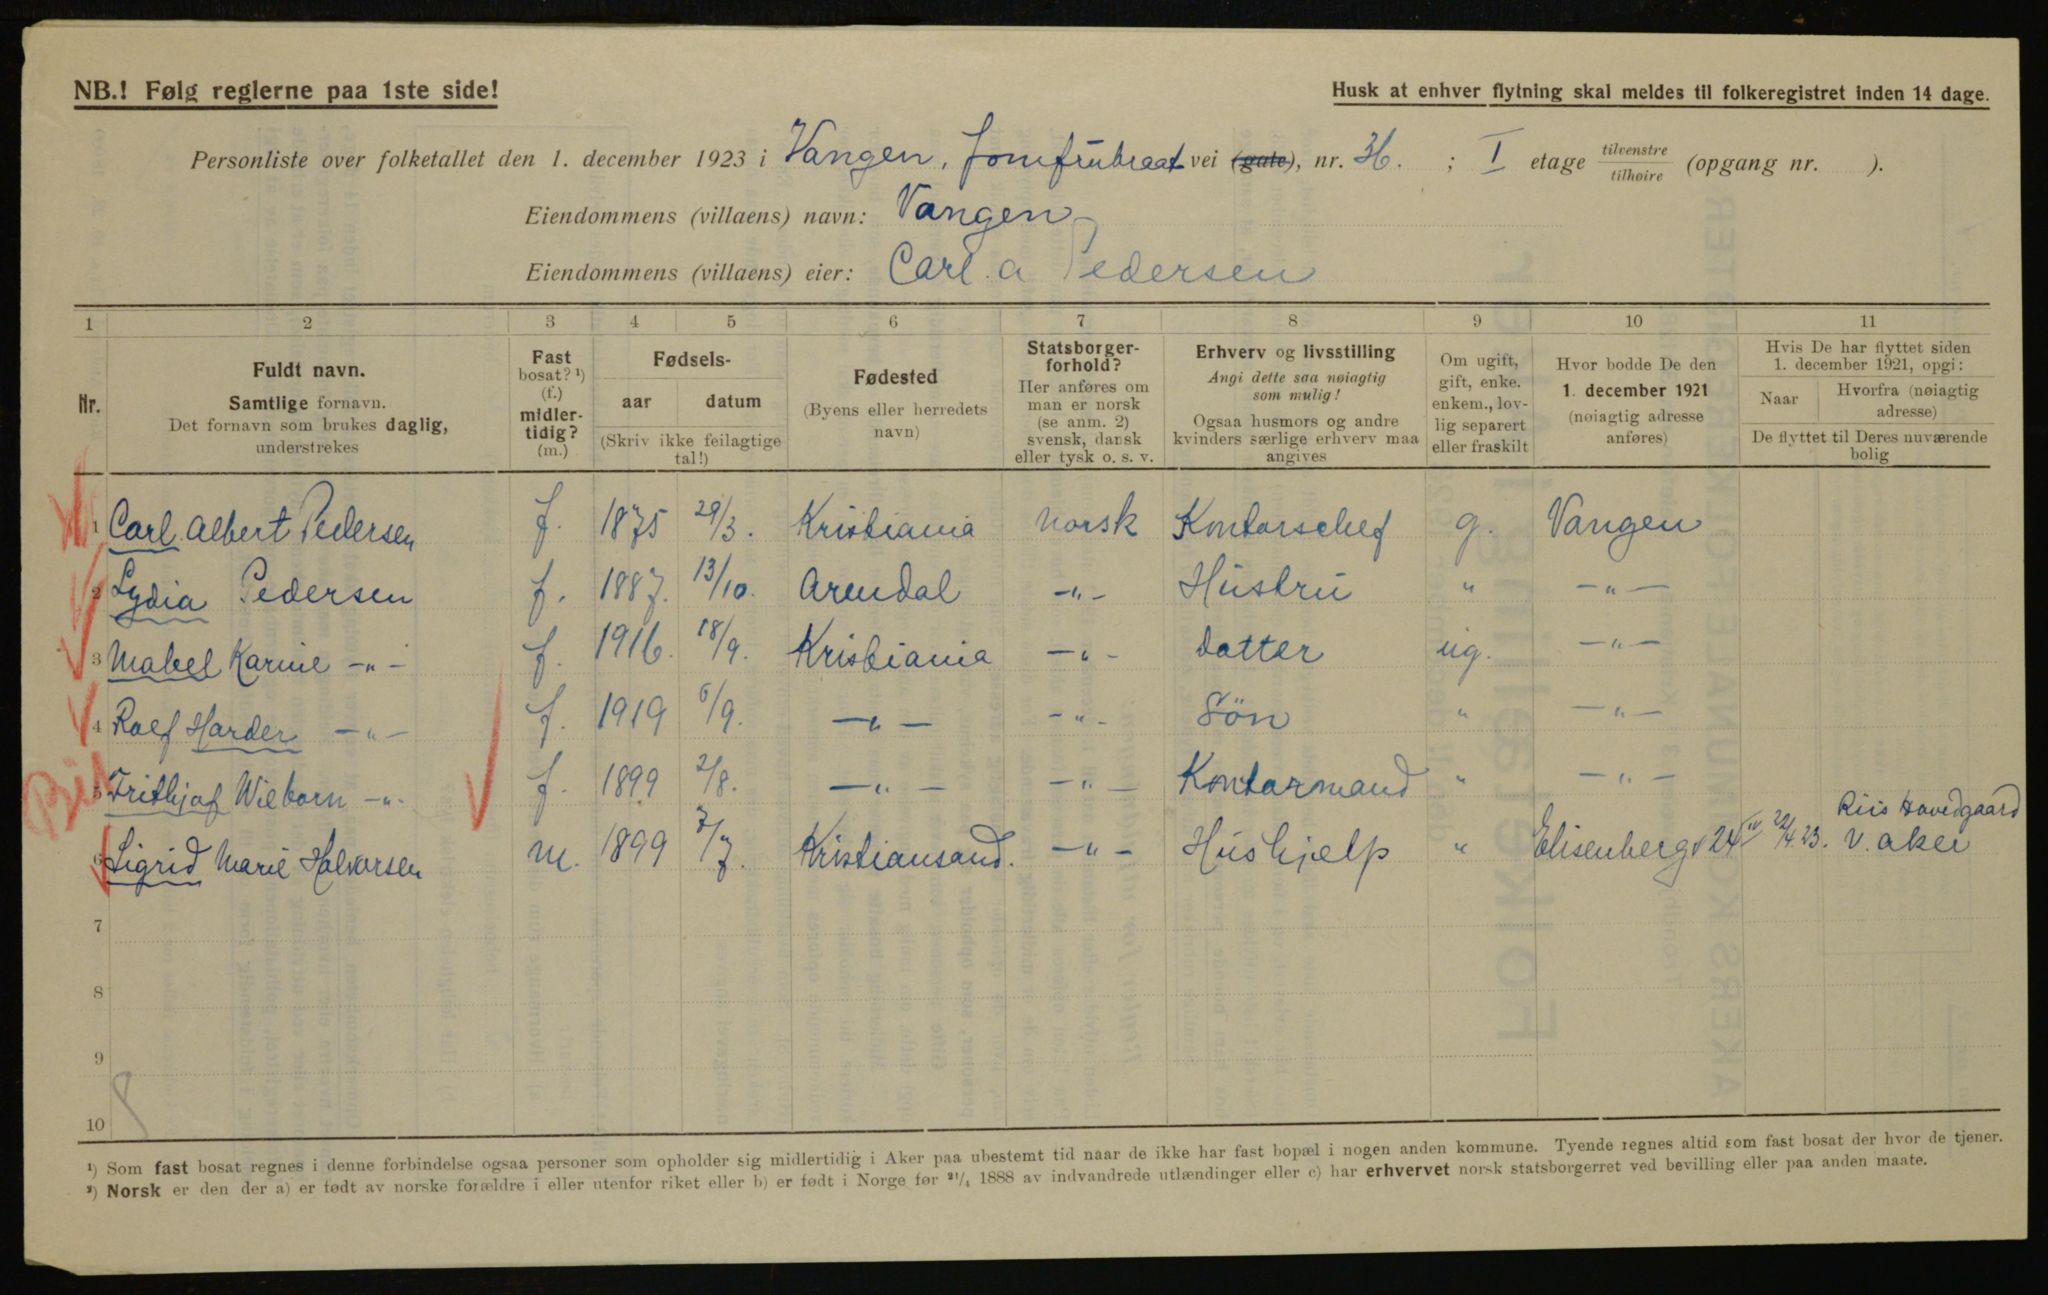 NB.! Følg reglerne paa 1ste side!
Husk at enhver flytning skal meldes til folkeregistret inden 14 dage.
Personliste over folketallet den 1. december 1923 i Vangen, Jomfrubraat vei (gate), nr. 36. ; I etage tilvenstre tilhøire (opgang nr. ).
Eiendommens (villaens) navn: Vangen
Eiendommens (villaens) eier: Carl a Pedersen
1 2 3 4 5 6 7 8 9 10 11
Nr.
Fuldt navn.
Samtlige fornavn.
Det fornavn som brukes daglig,
understrekes
Fast
bosat? ¹)
(f.)
midler-
tidig?
(m.)
Fødsels-
aar datum
(Skriv ikke feilagtige
tal!)
Fødested
(Byens eller herredets
navn)
Statsborger-
forhold?
Her anføres om
man er norsk
(se anm. 2)
svensk, dansk
eller tysk o. s. v.
Erhverv og livsstilling
Angi dette saa nøiagtig
som mulig!
Ogsaa husmors og andre
kvinders særlige erhverv maa
angives
Om ugift,
gift, enke.
enkem., lov-
lig separert
eller fraskilt
Hvor bodde De den
1. december 1921
(nøiagtig adresse
anføres)
Hvis De har flyttet siden
1. december 1921, opgi:
Naar
Hvorfra (nøiagtig
adresse)
De flyttet til Deres nuværende
bolig
1 Carl Albert Pedersen f. 1875 29/3. Kristiania norsk Kontorschef g. Vangen
2 Lydia Pedersen f. 1887. 13/10. Arendal -"- Hustru " -"-
3 Mabel Karine -"- f. 1916. 18/9. Kristiania -"- Datter ug. -"-
4 Rolf Harder -"- f. 1919 6/9. -"- -"- Sön " -"-
5 Frithjof Wieborn -"- f. 1899 2/8. -"- -"- Kontormand " -"-
6 Sigrid Marie Halvorsen m. 1899 7/7. Kristiansand. -"- Hushjælp " Elisenbergv 24 IV 22/4.23. Riis Hovedgaard
V. Aker
7
8
9
10
¹) Som fast bosat regnes i denne forbindelse ogsaa personer som opholder sig midlertidig i Aker paa ubestemt tid naar de ikke har fast bopæl i nogen anden kommune. Tyende regnes altid som fast bosat der hvor de tjener.
²) Norsk er den der a) er født av norske forældre i eller utenfor riket eller b) er født i Norge før ²¹/₄ 1888 av indvandrede utlændinger eller c) har erhvervet norsk statsborgerret ved bevilling eller paa anden maate.